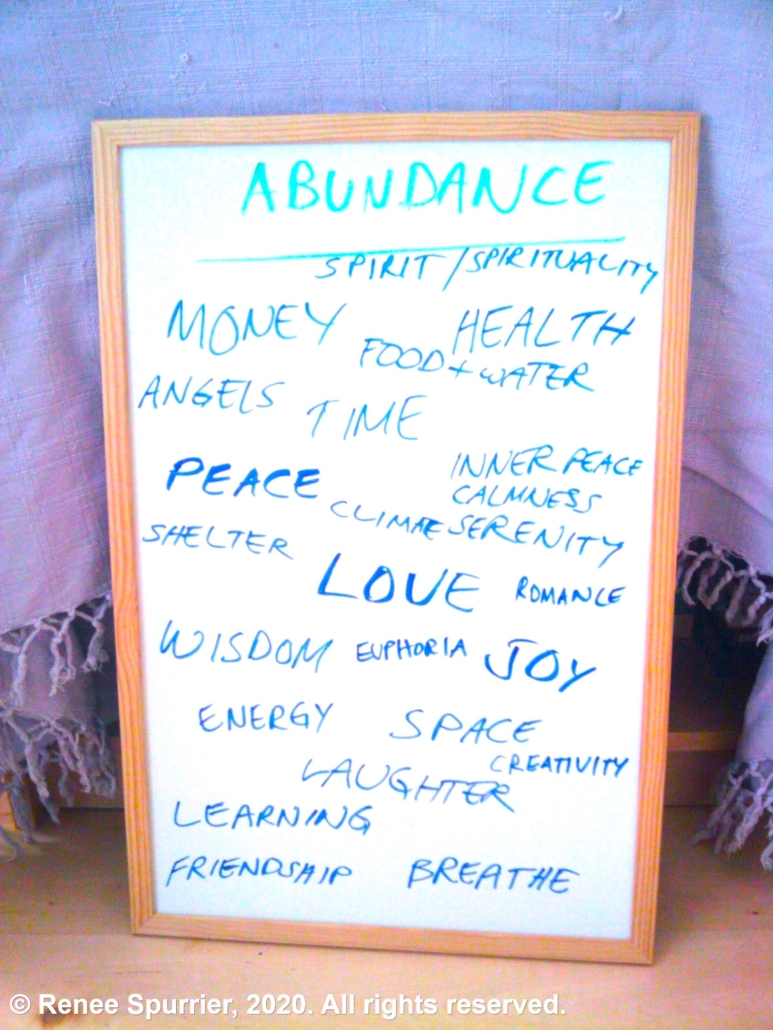 ABUNDANCE
SPIRIT/SPIRITUALITY
MONEY
HEALTH
FOOD + WATER
ANGELS
TIME
PEACE
INNER PEACE
CALMNESS
SERENITY
CLIMATE
SHELTER
LOVE
ROMANCE
WISDOM
EUPHORIA
JOY
ENERGY
SPACE
CREATIVITY
LAUGHTER
LEARNING
FRIENDSHIP
BREATHE
© Renee Spurrier, 2020. All rights reserved.